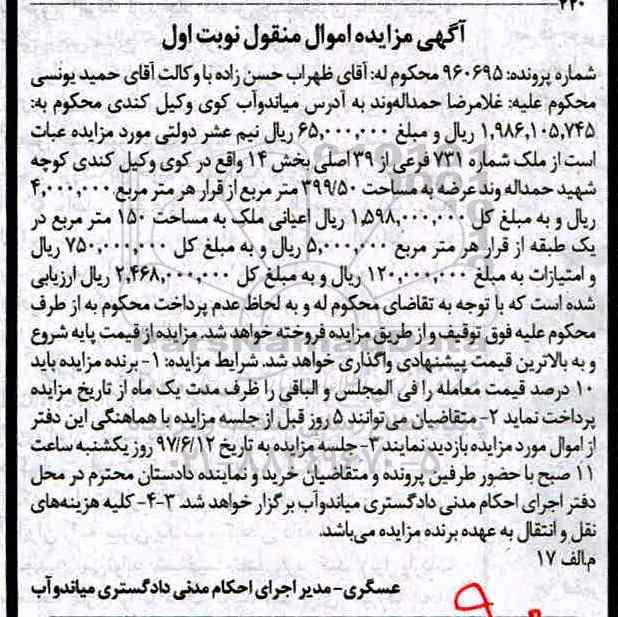 ۲۲۰
آگهی مزایده اموال منقول نوبت اول
شماره پرونده: ۹۶۰۶۹۵ محکوم له: آقای ظهراب حسن زاده با وکالت آقای حمید یونسی
محکوم علیه: غلامرضا حمداله‌وند به آدرس میاندوآب کوی وکیل کندی محکوم به:
۱,۹۸۶,۱۰۵,۷۴۵ ریال و مبلغ ۶۵,۰۰۰,۰۰۰ ریال نیم عشر دولتی مورد مزایده عبات
است از ملک شماره ۷۳۱ فرعی از ۳۹ اصلی بخش ۱۴ واقع در کوی وکیل کندی کوچه
شهید حمداله وند عرضه به مساحت ۳۹۹/۵۰ متر مربع از قرار هر متر مربع ۴,۰۰۰,۰۰۰
ریال و به مبلغ کل ۱,۵۹۸,۰۰۰,۰۰۰ ریال اعیانی ملک به مساحت ۱۵۰ متر مربع در
یک طبقه از قرار هر متر مربع ۵,۰۰۰,۰۰۰ ریال و به مبلغ کل ۷۵۰,۰۰۰,۰۰۰ ریال
و امتیازات به مبلغ ۱۲۰,۰۰۰,۰۰۰ ریال و به مبلغ کل ۲,۴۶۸,۰۰۰,۰۰۰ ریال ارزیابی
شده است که با توجه به تقاضای محکوم له و به لحاظ عدم پرداخت محکوم به از طرف
محکوم علیه فوق توقیف و از طریق مزایده فروخته خواهد شد. مزایده از قیمت پایه شروع
و به بالاترین قیمت پیشنهادی واگذاری خواهد شد. شرایط مزایده: ۱- برنده مزایده باید
۱۰ درصد قیمت معامله را فی المجلس و الباقی را ظرف مدت یک ماه از تاریخ مزایده
پرداخت نماید ۲- متقاضیان می‌توانند ۵ روز قبل از جلسه مزایده با هماهنگی این دفتر
از اموال مورد مزایده بازدید نمایند ۳- جلسه مزایده به تاریخ ۹۷/۶/۱۲ روز یکشنبه ساعت
۱۱ صبح با حضور طرفین پرونده و متقاضیان خرید و نماینده دادستان محترم در محل
دفتر اجرای احکام مدنی دادگستری میاندوآب برگزار خواهد شد. ۳-۴- کلیه هزینه‌های
نقل و انتقال به عهده برنده مزایده می‌باشد.
م.الف ۱۷
عسگری- مدیر اجرای احکام مدنی دادگستری میاندوآب